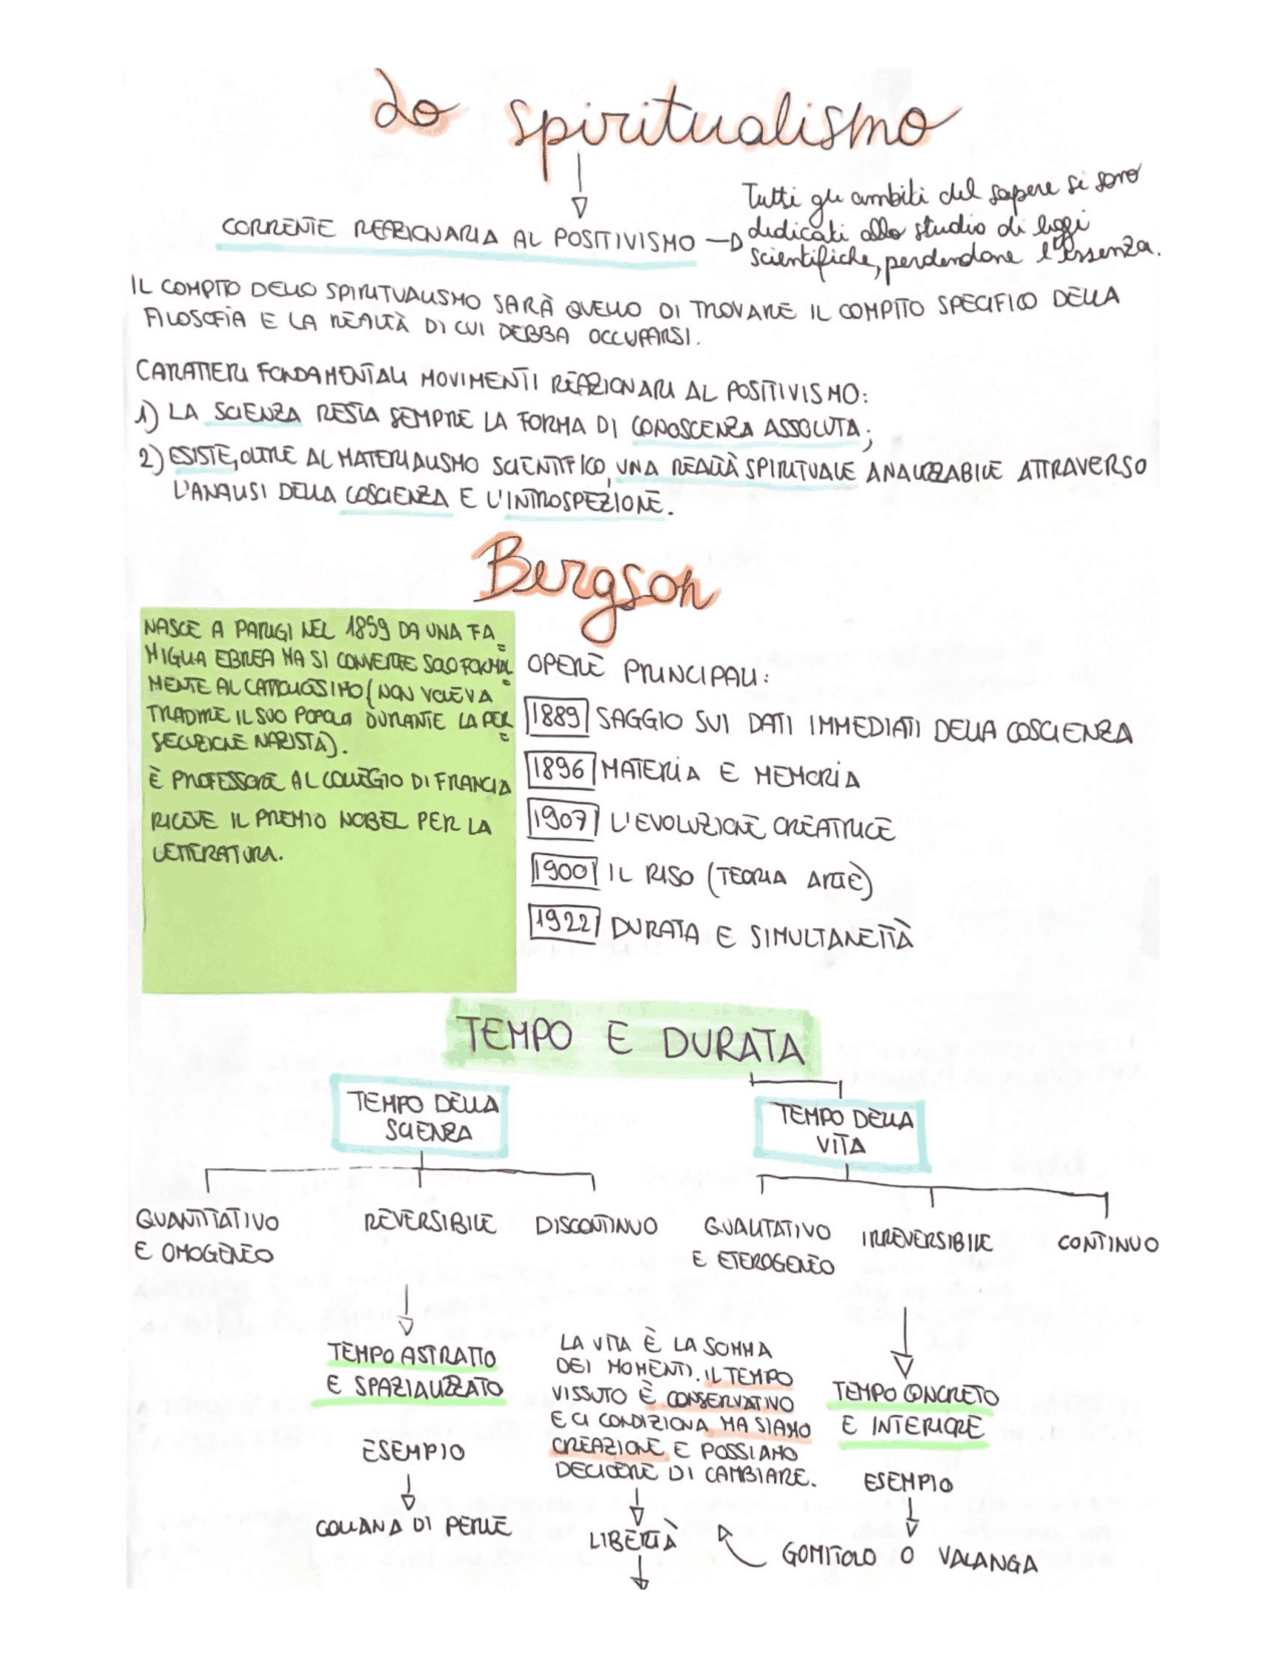 Lo spiritualismo
CORRENTE REAZIONARIA AL POSITIVISMO
Tutti gli ambiti del sapere si sono
dedicati allo studio di leggi
scientifiche, perdendone l'essenza.
IL COMPITO DELLO SPIRITUALISMO SARÀ QUELLO DI TROVARE IL COMPITO SPECIFICO DELLA
FILOSOFIA E LA REALTÀ DI CUI DEBBA OCCUPARSI.
CARATTERI FONDAMENTALI MOVIMENTI REAZIONARI AL POSITIVISMO:
1) LA SCIENZA RESTA SEMPRE LA FORMA DI CONOSCENZA ASSOLUTA;
2) ESISTE, OLTRE AL MATERIALISMO SCIENTIFICO, UNA REALTÀ SPIRITUALE ANALIZZABILE ATTRAVERSO
L'ANALISI DELLA COSCIENZA E L'INTROSPEZIONE.
Bergson
NASCE A PARIGI NEL 1859 DA UNA FA=
MIGLIA EBREA MA SI CONVERTE SOLO FORMAL=
MENTE AL CATTOLICESIMO (NON VOLEVA
TRADIRE IL SUO POPOLO DURANTE LA PER=
SECUZIONE NAZISTA).
È PROFESSORE AL COLLEGIO DI FRANCIA
RICEVE IL PREMIO NOBEL PER LA
LETTERATURA.
OPERE PRINCIPALI:
1889 SAGGIO SUI DATI IMMEDIATI DELLA COSCIENZA
1896 MATERIA E MEMORIA
1907 L'EVOLUZIONE CREATRICE
1900 IL RISO (TEORIA ARTE)
1922 DURATA E SIMULTANEITÀ
TEMPO E DURATA
TEMPO DELLA
SCIENZA
TEMPO DELLA
VITA
QUANTITATIVO
E OMOGENEO
REVERSIBILE
DISCONTINUO
QUALITATIVO
E ETEROGENEO
IRREVERSIBILE
CONTINUO
TEMPO ASTRATTO
E SPAZIALIZZATO
ESEMPIO
COLLANA DI PERLE
LA VITA È LA SOMMA
DEI MOMENTI. IL TEMPO
VISSUTO È CONSERVATIVO
E CI CONDIZIONA MA SIAMO
CREAZIONE E POSSIAMO
DECIDERE DI CAMBIARE.
LIBERTÀ
TEMPO CONCRETO
E INTERIORE
ESEMPIO
GOMITOLO O VALANGA